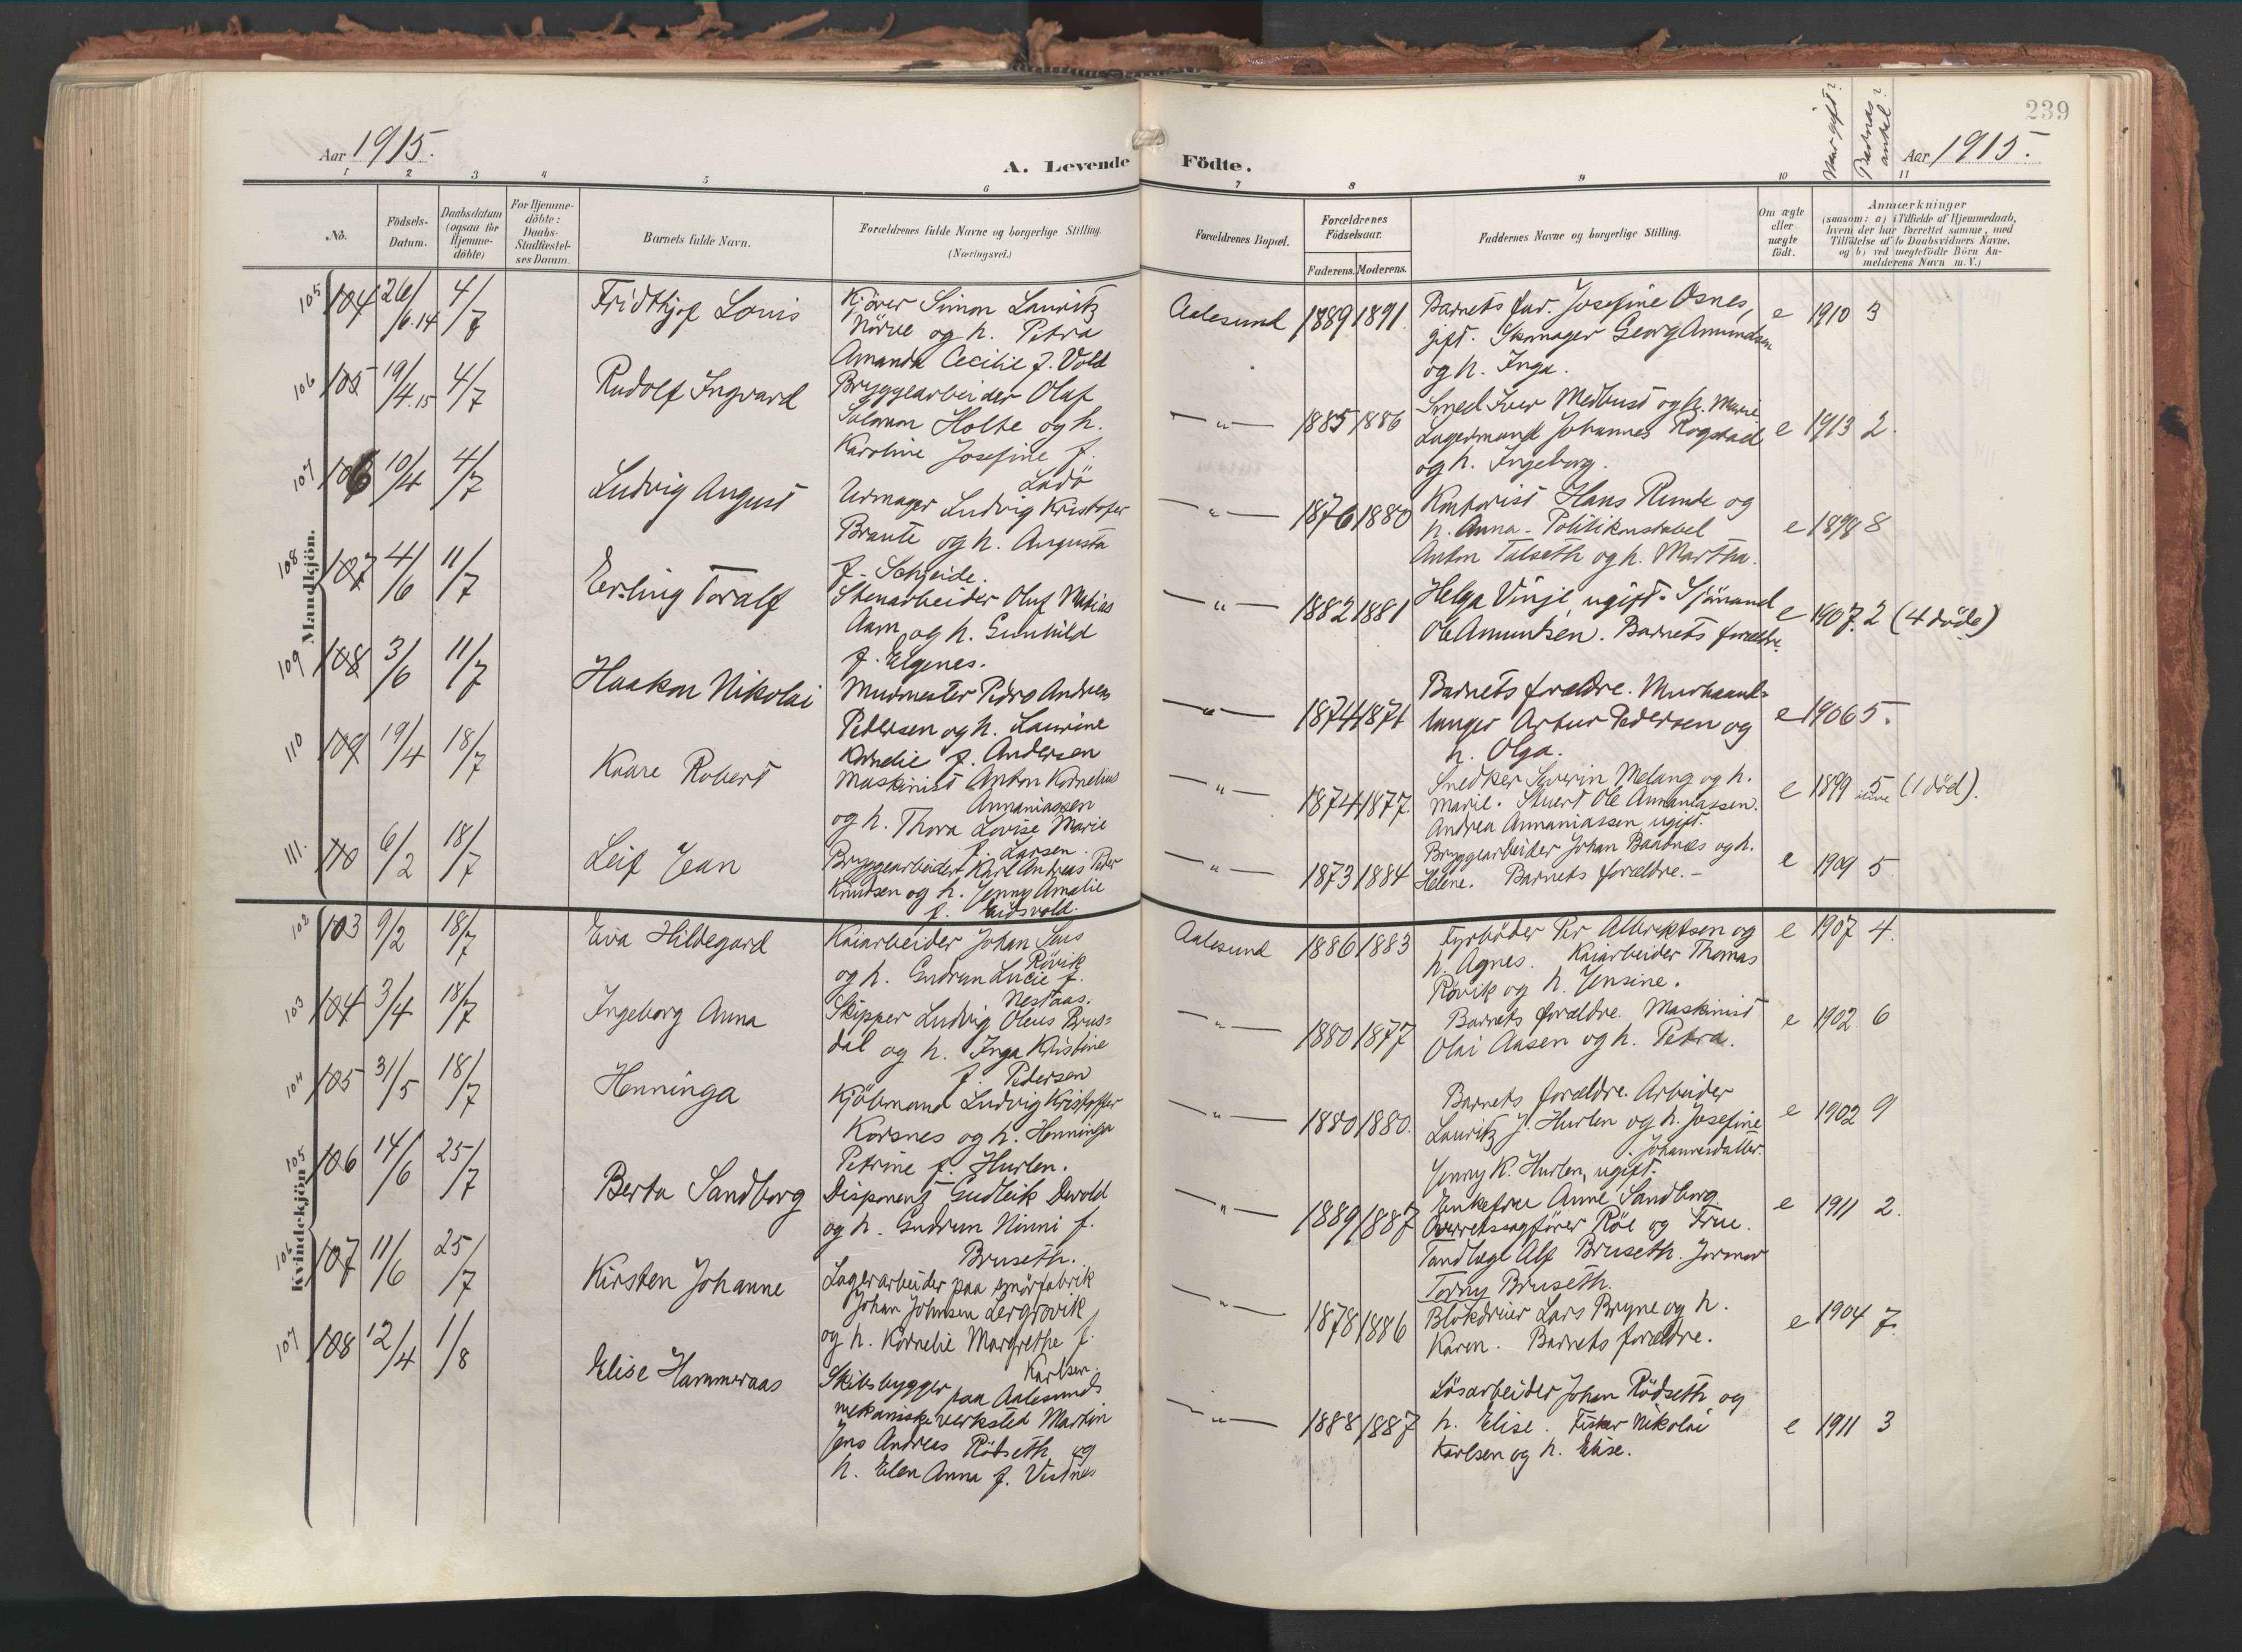 239
Aar 1915.
A. Levende Födte.
Var gift?
Barnas antal?
Aar 1915.
1 2 3 4 5 6 7 8 9 10 11
No.
Födsels-Datum.
Daabsdatum (ogsaa for Hjemmedöbte)
For Hjemmedöbte: Daabs-Stadfæstelses Datum.
Barnets fulde Navn.
Forældrenes fulde Navne og borgerlige Stilling. (Næringsvei.)
Forældrenes Bopæl.
Forældrenes Födselsaar.
Faderens. Moderens.
Faddernes Navne og borgerlige Stilling.
Om ægte eller uægte födt.
Anmærkninger
(saasom: a) i Tilfælde af Hjemmedaab, hvem der har forrettet samme, med Tilföielse af to Daabsvidners Navne, og b) ved uægtefödte Börn Anmelderens Navn m. V.)
Mandkjön.
105 104 26/6.14 4/7 Fridthjof Louis
Kjörer Simon Lauritz
Nörve og h. Petra
Amanda Cecilie f. Vold
Aalesund 1889 1891
Barnets far. Josefine Osnes,
gift. Skomager Georg Amundsen
og h. Inga.
e 1910 3
106 105 19/4.15 4/7 Rudolf Ingvard
Bryggearbeider Olaf
Salomon Holte og h.
Karoline Josefine f.
Ladö
— " — 1885 1886
Smed Iver Medbust og h. Marie
Lagermand Johannes Rogstad
og h. Ingeborg.
e 1913 2.
107 106 10/4 4/7 Ludvig August
Urmager Ludvig Kristofer
Braute og h. Augusta
f. Scheide.
— " — 1876 1880
Kontorist Hans Runde og
h. Anna. Politikonstabel
Anton Talseth og h. Martha.
e 1898 8
108 107 4/6 11/7 Erling Toralf
Stenarbeider Oluf Matias
Aam og h. Gunhild
f. Elgenes.
— " — 1882 1881
Helga Vinje, ugift. Sjömand
Ole Amundsen. Barnets forældre.
e 1907. 2 (4 döde)
109 108 3/6 11/7 Haakon Nikolai
Murmester Pedro Andreas
Pettersen og h. Laurine
Kornelie f. Andersen
— " — 1874 1871
Barnets forældre. Murhaand-
langer Artur Pedersen og
h. Olga.
e 1906 5.
110 109 19/4 18/7 Kaare Robert
Maskinist Anton Kornelius
Annaniassen
og h. Thora Lovise Marie
f. Larsen.
— " — 1874 1877.
Snedker Severin Melang og h.
Marie. Stuert Ole Annaniassen.
Andrea Annaniassen, ugift.
e 1899 5 (1 död).
111. 110 6/2 18/7 Leif Jean
Bryggearbeider Karl Andreas Peter
Knudsen og h. Jenny Amalie
f. Eidsvold.
— " — 1873 1884
Bryggearbeider Johan Baadnes og h.
Helene. Barnets forældre. –
e 1909 5
Kvindekjön.
102 103 9/2 18/7 Eva Hildegard
Kaiarbeider Johan Lars
Rövik
og h. Gudrun Lucie f.
Nestaas.
Aalesund 1886 1883
Fyrböder Per Albriktsen og
h. Agnes. Kaiarbeider Thomas
Rövik og h. Jensine.
e 1907 4.
103 104 3/4 18/7 Ingeborg Anna
Skipper Ludvig Oleus Brus-
dal og h. Inga Kristine
f. Pedersen
— " — 1880 1877
Barnets forældre. Maskinist
Olai Aasen og h. Petra.
e 1902 6
104 105 31/5 18/7 Henninga
Kjöbmand Ludvig Kristoffer
Korsnes og h. Henninga
Petrine f. Hurlen.
— " — 1880 1880.
Barnets forældre. Arbeider
Lauritz J. Hurlen og h. Josefine
Johannesdatter.
Jenny K. Hurlen, ugift.
e 1902 9
105 106 14/6 25/7 Berta Sandborg
Disponent Gudleik Devold
og h. Gudrun Ninni f.
Bruseth.
— " — 1889 1887
Enkefrue Anne Sandborg.
Overretssagförer Röe og Frue.
Tandlæge Alf Bruseth. Jormor
Torny Bruseth.
e 1911 2.
106 107 11/6 25/7 Kirsten Johanne
Lagerarbeider paa smörfabrik
Johan Johnsen Lergrovik
og h. Kornelie Margrethe f.
Karlsen.
— " — 1878 1886
Blokdreier Lars Bryne og h.
Karen. Barnets forældre.
e 1904 7.
107 108 12/4 1/8 Elise Hammeraas
Skibsbygger paa Aalesunds
mekaniske verksted Martin
Jens Andreas Rödseth og
h. Elen Anna f. Vestnes
— " — 1888 1887
Lösarbeider Johan Rödseth og
h. Elise. Fisker Nikolai
Karlsen og h. Elise.
e 1911 3